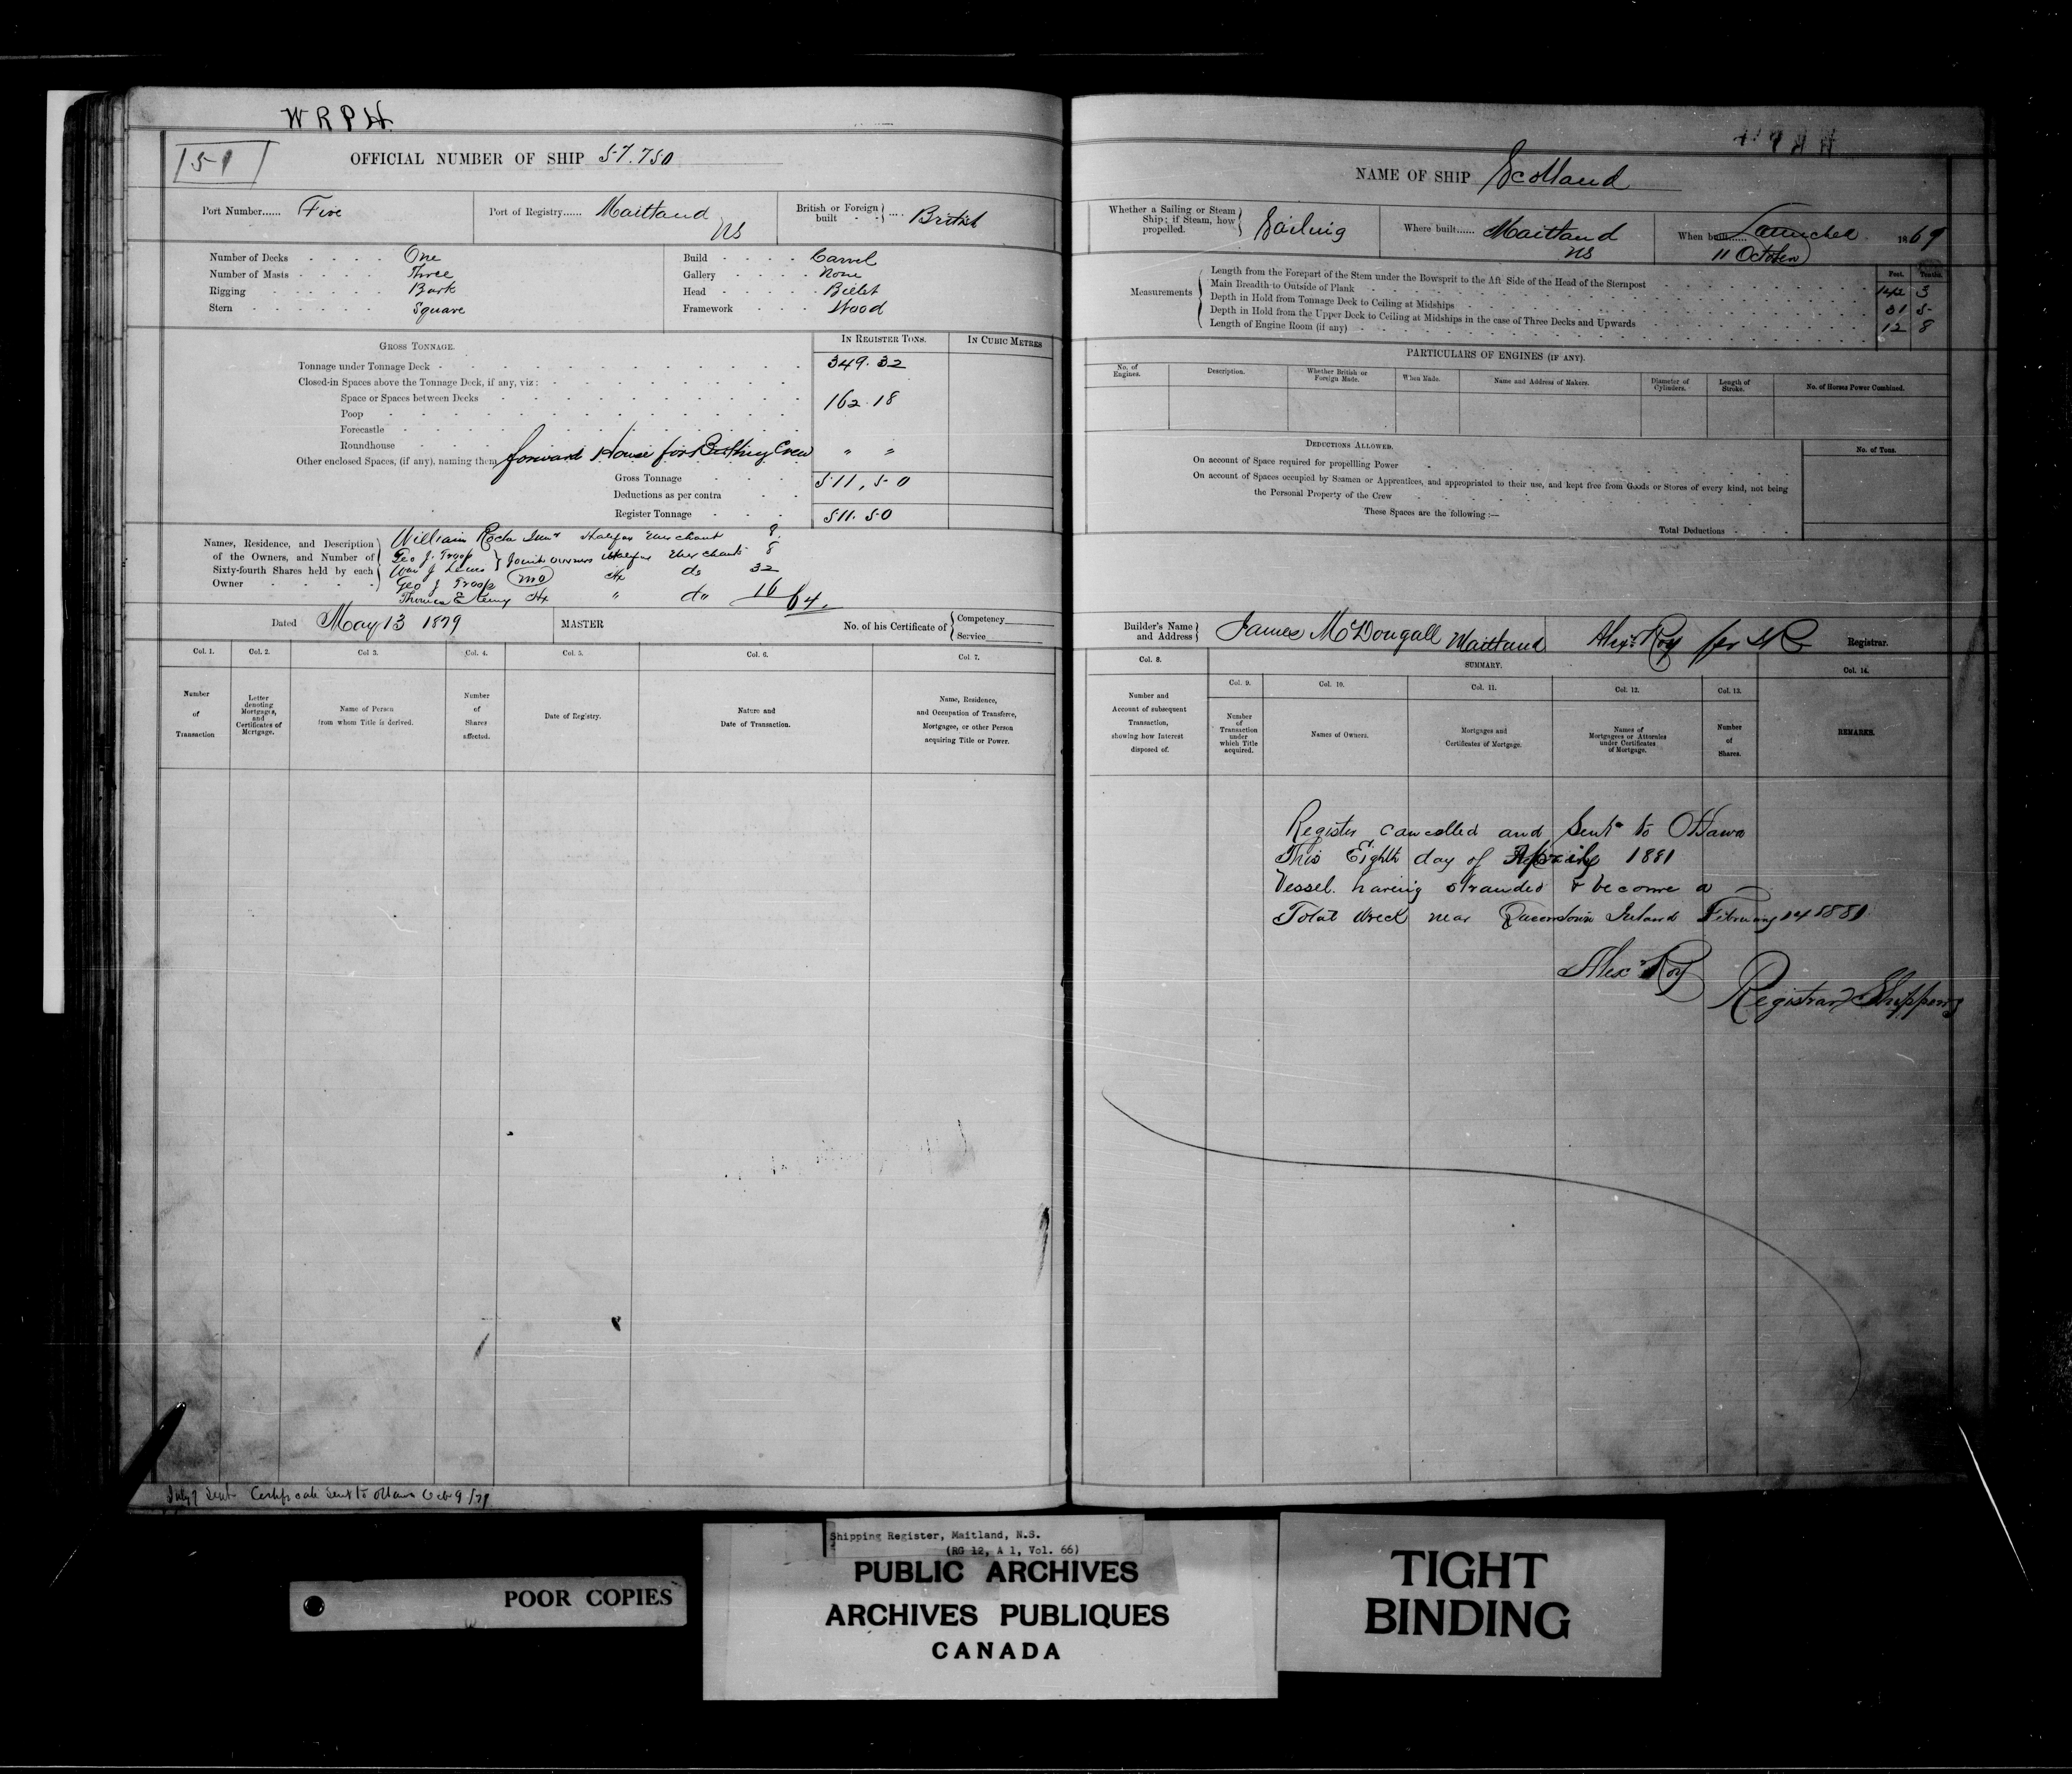 W R P H.
151
OFFICIAL NUMBER OF SHIP 57.750
Port Number...... Five
Port of Registry...... Maitland NS
British or Foreign built - - } .... British
Number of Decks - - - - One
Number of Masts - - - - Three
Rigging - - - - - Bark
Stern - - - - - Square
Build - - - - Carvel
Gallery - - - - None
Head - - - - Billet
Framework - - - Wood
GROSS TONNAGE.
IN REGISTER TONS.
IN CUBIC METRES
Tonnage under Tonnage Deck - 349.32
Closed-in Spaces above the Tonnage Deck, if any, viz:
Space or Spaces between Decks 162.18
Poop
Forecastle
Roundhouse
Other enclosed Spaces, (if any), naming them forward House for Berthing Crew " "
Gross Tonnage 511.50
Deductions as per contra
Register Tonnage 511.50
Names, Residence, and Description of the Owners, and Number of Sixty-fourth Shares held by each Owner
William Halifax Merchant 8
Geo J. Troop } Joint owners Halifax Merchants 8
Wm J Lewis
Geo J Troop Hx do 32
Thomas E Kenny Hx " do 16
64.
Dated May 13 1879
MASTER
No. of his Certificate of { Competency
Service
Col. 1. Col. 2. Col 3. Col. 4. Col. 5. Col. 6. Col. 7.
Number of Transaction
Letter denoting Mortgages, and Certificates of Mortgage.
Name of Person from whom Title is derived.
Number of Shares affected.
Date of Registry.
Nature and Date of Transaction.
Name, Residence, and Occupation of Transferee, Mortgagee, or other Person acquiring Title or Power.
Certificate sent to Ottawa Oct 9/79
NAME OF SHIP Scotland
Whether a Sailing or Steam Ship; if Steam, how propelled. } Sailing
Where built...... Maitland NS
When built...... Launched 11 October 1869
Measurements
Feet. Tenths.
Length from the Forepart of the Stem under the Bowsprit to the Aft Side of the Head of the Sternpost 142 3
Main Breadth to Outside of Plank 31 5
Depth in Hold from Tonnage Deck to Ceiling at Midships 12 8
Depth in Hold from the Upper Deck to Ceiling at Midships in the case of Three Decks and Upwards
Length of Engine Room (if any)
PARTICULARS OF ENGINES (IF ANY).
No. of Engines.
Description.
Whether British or Foreign Made.
When Made.
Name and Address of Makers.
Diameter of Cylinders.
Length of Stroke.
No. of Horses Power Combined.
DEDUCTIONS ALLOWED.
No. of Tons.
On account of Space required for propelling Power
On account of Spaces occupied by Seamen or Apprentices, and appropriated to their use, and kept free from Goods or Stores of every kind, not being
the Personal Property of the Crew
These Spaces are the following :—
Total Deductions
Builder's Name and Address } James McDougall Maitland
Alexr Roy Registrar.
Col. 8.
SUMMARY.
Col. 14.
Col. 9. Col. 10. Col. 11. Col. 12. Col. 13.
Number and Account of subsequent Transaction, showing how Interest disposed of.
Number of Transaction under which Title acquired.
Names of Owners.
Mortgages and Certificates of Mortgage.
Names of Mortgagees or Attornies under Certificates of Mortgage.
Number of Shares.
REMARKS.
Register cancelled and Sent to Ottawa
This Eighth day of April 1881
Vessel having stranded & become a
Total Wreck near Queenstown Ireland February 14 1881
Alexr Roy
Registrar Shipping
POOR COPIES
Shipping Register, Maitland, N.S.
(RG 12, A 1, Vol. 66)
PUBLIC ARCHIVES
ARCHIVES PUBLIQUES
CANADA
TIGHT
BINDING